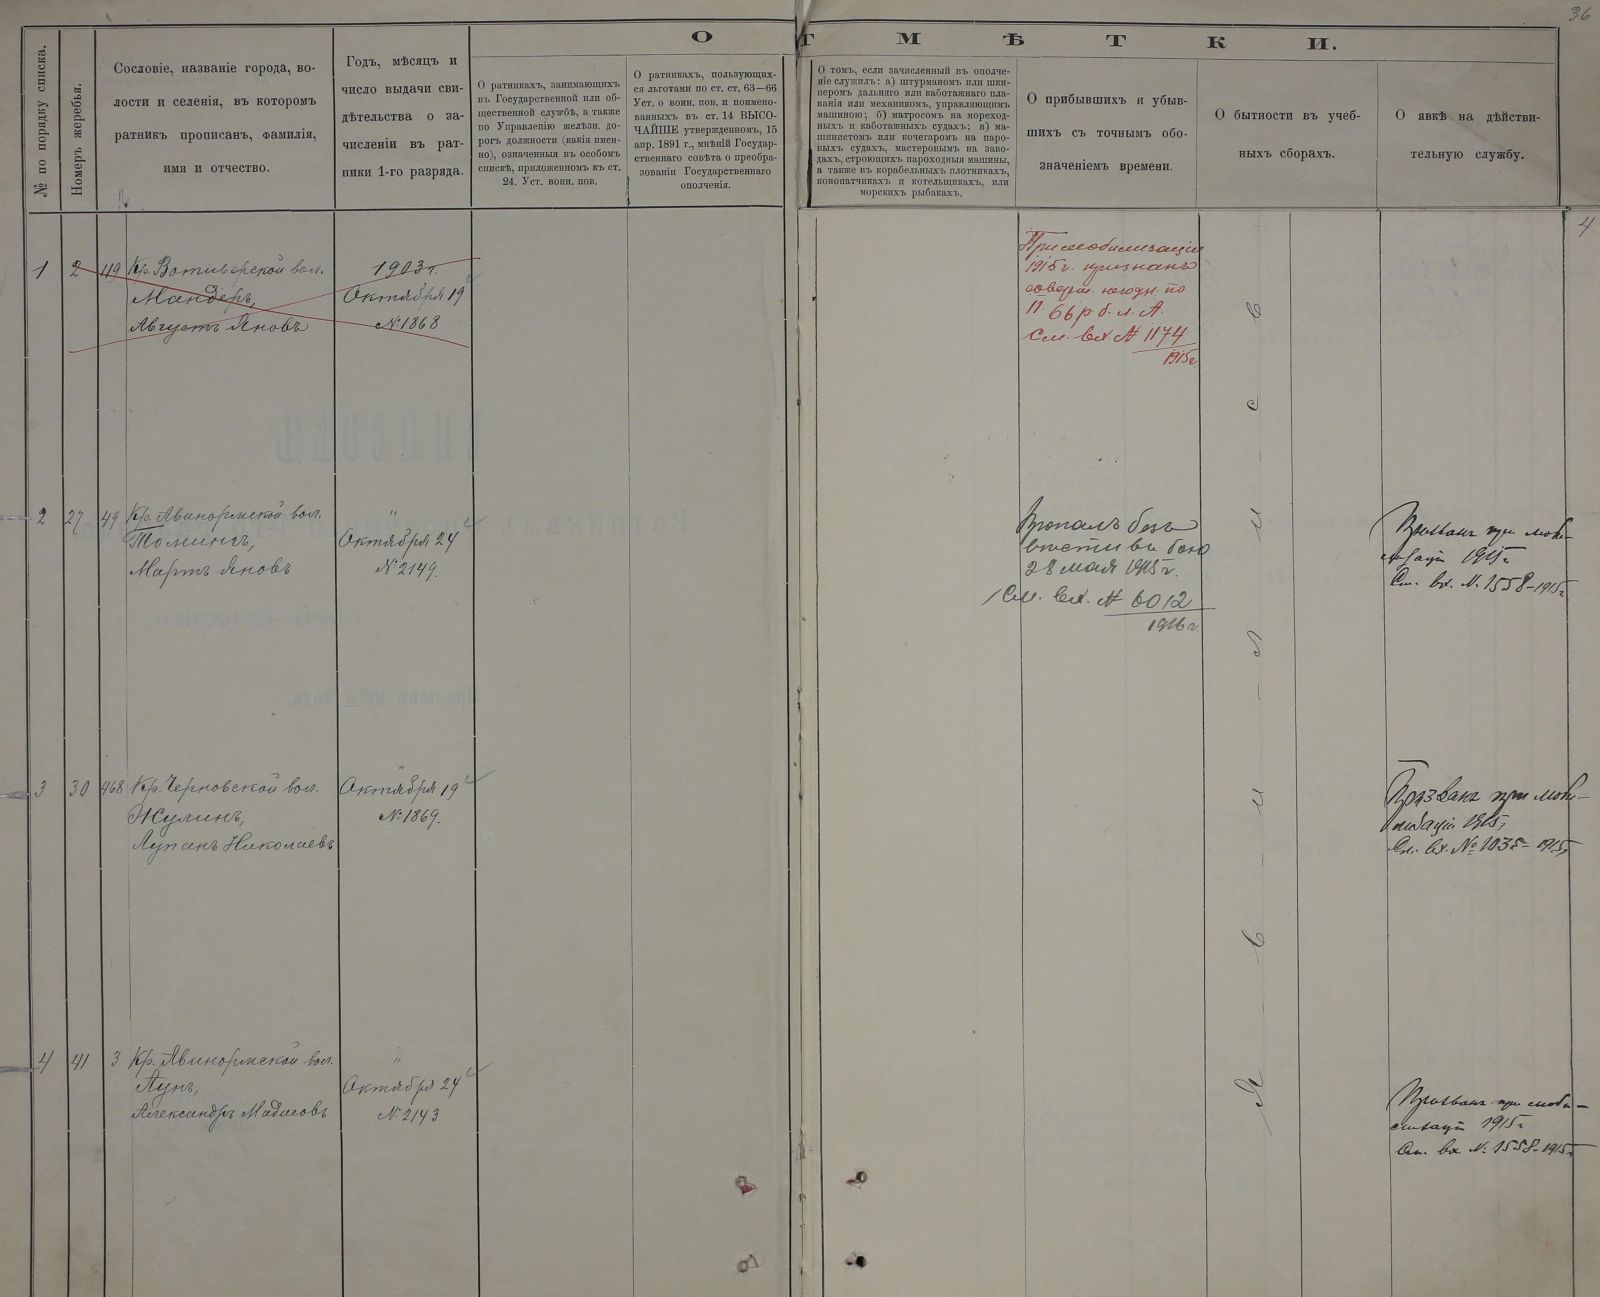 36
ОТМѢТКИ.
№ по порядку списка.
Номеръ жеребья.
Сословіе, названіе города, во-
лости и селенія, въ которомъ
ратникъ прописанъ, фамилія,
имя и отчество.
Годъ, мѣсяцъ и
число выдачи сви-
дѣтельства о за-
численіи въ рат-
ники 1-го разряда.
О ратникахъ, занимающихъ
въ Государственной или об-
щественной службѣ, а также
по Управленію желѣзн. до-
рогъ должности (какія имен-
но), означенныя въ особомъ
спискѣ, приложенномъ къ ст.
24. Уст. воин. пов.
О ратникахъ, пользующих-
ся льготами по ст. ст. 63—66
Уст. о воин. пов. и поимено-
ванныхъ въ ст. 14 ВЫСО-
ЧАЙШЕ утвержденномъ, 15
апр. 1891 г., мнѣній Государ-
ственнаго совѣта о преобра-
зованіи Государственнаго
ополченія.
О томъ, если зачисленный въ ополче-
ніе служилъ: а) штурманомъ или шки-
перомъ дальняго или каботажнаго пла-
ванія или механикомъ, управляющимъ
машиною; б) матросомъ на мореход-
ныхъ и каботажныхъ судахъ; в) ма-
шинистомъ или кочегаромъ на паро-
выхъ судахъ, мастеровымъ на заво-
дахъ, строющихъ пароходныя машины,
а также въ корабельныхъ плотникахъ,
конопатчикахъ и котельщикахъ, или
морскихъ рыбакахъ.
О прибывшихъ и убыв-
шихъ съ точнымъ обо-
значеніемъ времени.
О бытности въ учеб-
ныхъ сборахъ.
О явкѣ на дѣйстви-
тельную службу.
4
1 2 119 Кр. Вотиверской вол.
Мандеръ,
Августъ Яновъ
1903 г.
Октября 19
№ 1868
При мобилизаціи
1915 г. признанъ
соверш. негодн. по
п. 66 р. б. л. А.
См. вх № 1174
1915 г.
2 27 49 Кр. Авинормской вол.
Томингъ,
Мартъ Яновъ
"
Октября 24
№ 2149.
Пропалъ безъ
вѣсти въ бою
28 мая 1915 г.
См. вх. № 6012
1916 г.
Призванъ при моби-
лизаціи 1915 г
См. вх. № 1558-1915 г
3 30 468 Кр. Черновской вол.
Жулинъ,
Лупанъ Николаевъ
"
Октября 19
№ 1869.
Призванъ при моби-
лизаціи 1915 г
См. вх. № 1035-1915 г
4 41 3 Кр. Авинормской вол.
Лунъ,
Александръ Мадисовъ
"
Октября 24
№ 2143
Призванъ при моби-
лизаціи 1915 г
См. вх № 1558-1915 г